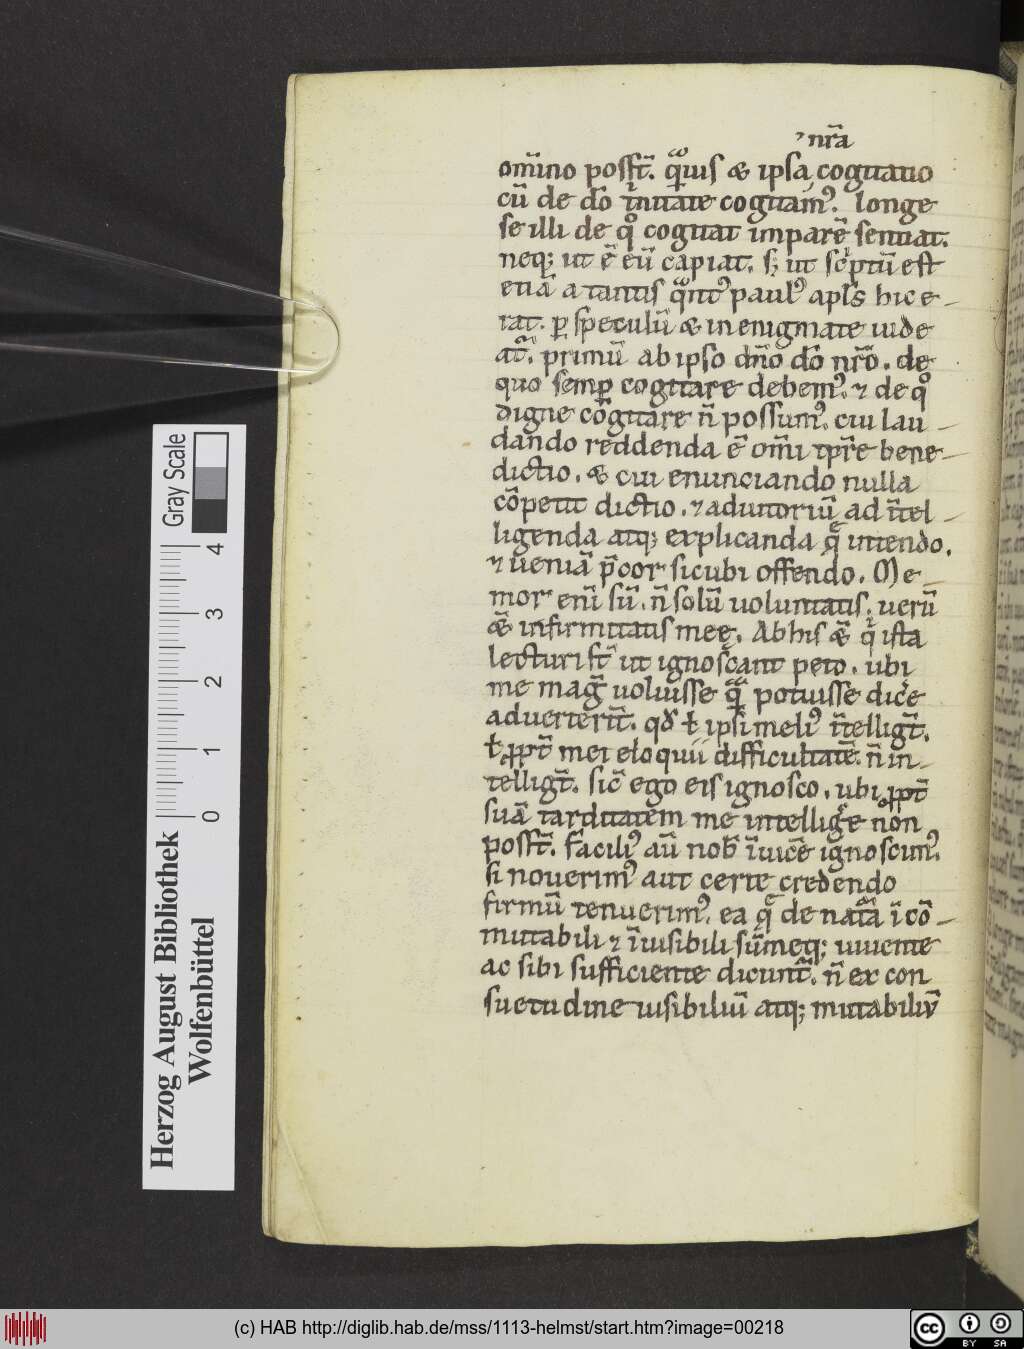 nr̄a
om̄ino posſt̄. qͣuis & ipsa cogitatio
cū de do̅ trinitate cogitamꝰ. longe
se illi de qͦ cogitat imparē sentiat.
neq; ut ē eū capiat. s; ut scͥptū est
etiā a tantis qͣntꝰ paulꝰ apl̄s hic e-
rat. ꝑ speculū & in enigmate uide
at̄. primū ab ipso dn̄o do̅ nr̄o. de
quo semꝑ cogitare debemꝰ. ⁊ de qͦ
digne cogitare n̄ possumꝰ. cui lau-
dando reddenda ē om̄i tp̄re bene-
dictio. & cui enunciando nulla
cōpetit dictio. ⁊ adiutoriū ad īntel-
ligenda atq; explicanda q̄ intendo.
⁊ ueniā p̄cor sicubi offendo. Me-
mor eni sū. n̄ solū uoluntatis. uerū
&̄ infirmitatis meę. Ab his &̄ qͥ ista
lecturi sт̄ ut ignoscant peto. ubi
me maḡ uoluisse qͣ̄ potuisse dice
aduerterīt. qd̛ ł ipsi meliꝰ ītelligt̄.
ł ꝓpt̄ mei eloquii difficultatē. n̄ in-
telligt̄. sic̄ ego eis ignosco. ubi ꝓpt̄
suā tarditatem me intelligere non
posst̄. Faciliꝰ aū nob̄ īuicē ignoscimꝰ.
si nouerimꝰ aut certe credendo
firmū tenuerimꝰ. ea q̄ de natͣ̄a ī cō-
mutabili ⁊ īuisibili sūmeq; uiuente
ac sibi sufficiente dicunt̄. n̄ ex con
suetudine uisibiliū atq; mutabiliū
Herzog August Bibliothek
Wolfenbüttel
Gray Scale
0 1 2 3 4
(c) HAB http://diglib.hab.de/mss/1113-helmst/start.htm?image=00218
cc BY SA